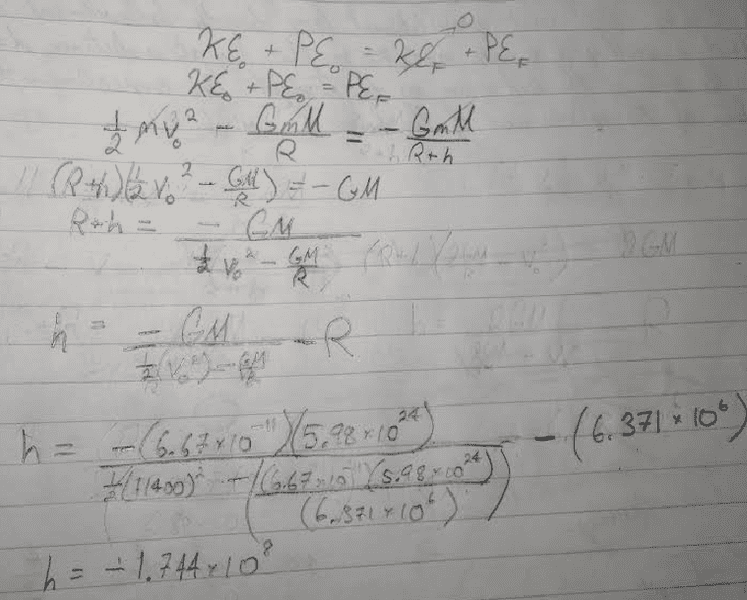 KE₀ + PE₀ = KE_F→0 + PE_F
KE₀ + PE₀ = PE_F
1/2 mv₀² - GmM/R = - GmM/(R+h)
(R+h)(1/2 v₀² - GM/R) = - GM
R+h = - GM/(1/2 v₀² - GM/R)
h = - GM/(1/2 (v₀²) - GM/R) - R
h = -(6.67×10⁻¹¹)(5.98×10²⁴)/(1/2 (11400)² - ((6.67×10⁻¹¹)(5.98×10²⁴)/(6.371×10⁶))) - (6.371×10⁶)
h = -1.744×10⁸